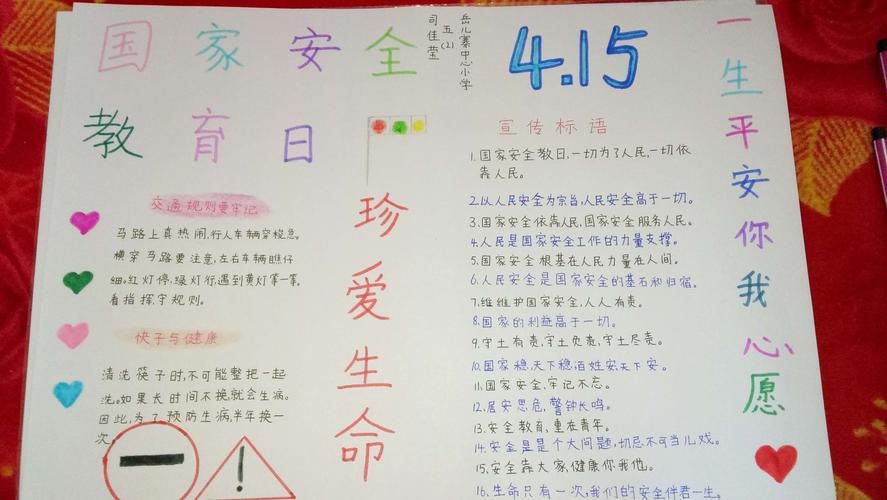 国家安全
教育日
岳儿寨中心小学
五(2)
司佳莹
4.15
一生平安你我心愿
珍爱生命
交通规则要牢记
马路上真热闹,行人车辆穿梭急。
横穿马路要注意,左右车辆瞧仔
细。红灯停,绿灯行,遇到黄灯等一等。
看指挥,守规则。
筷子与健康
清洗筷子时,不可能整把一起
洗。如果长时间不换,就会生病。
因此,为了预防生病,半年换一
次。
!
宣传标语
1.国家安全教日,一切为了人民,一切依
靠人民。
2.以人民安全为宗旨,人民安全高于一切。
3.国家安全依靠人民,国家安全服务人民。
4.人民是国家安全工作的力量支撑。
5.国家安全根基在人民力量在人间。
6.人民安全是国家安全的基石和归宿。
7.维维护国家安全,人人有责。
8.国家的利益高于一切。
9.守土有责,守土负责,守土尽责。
10.国家稳,天下稳,百姓安,天下安。
11.国家安全,牢记不忘。
12.居安思危,警钟长鸣。
13.安全教育,重在青年。
14.安全是是个大问题,切忌不可当儿戏。
15.安全靠大家,健康你我他。
16.生命只有一次,我们的安全伴君一生。